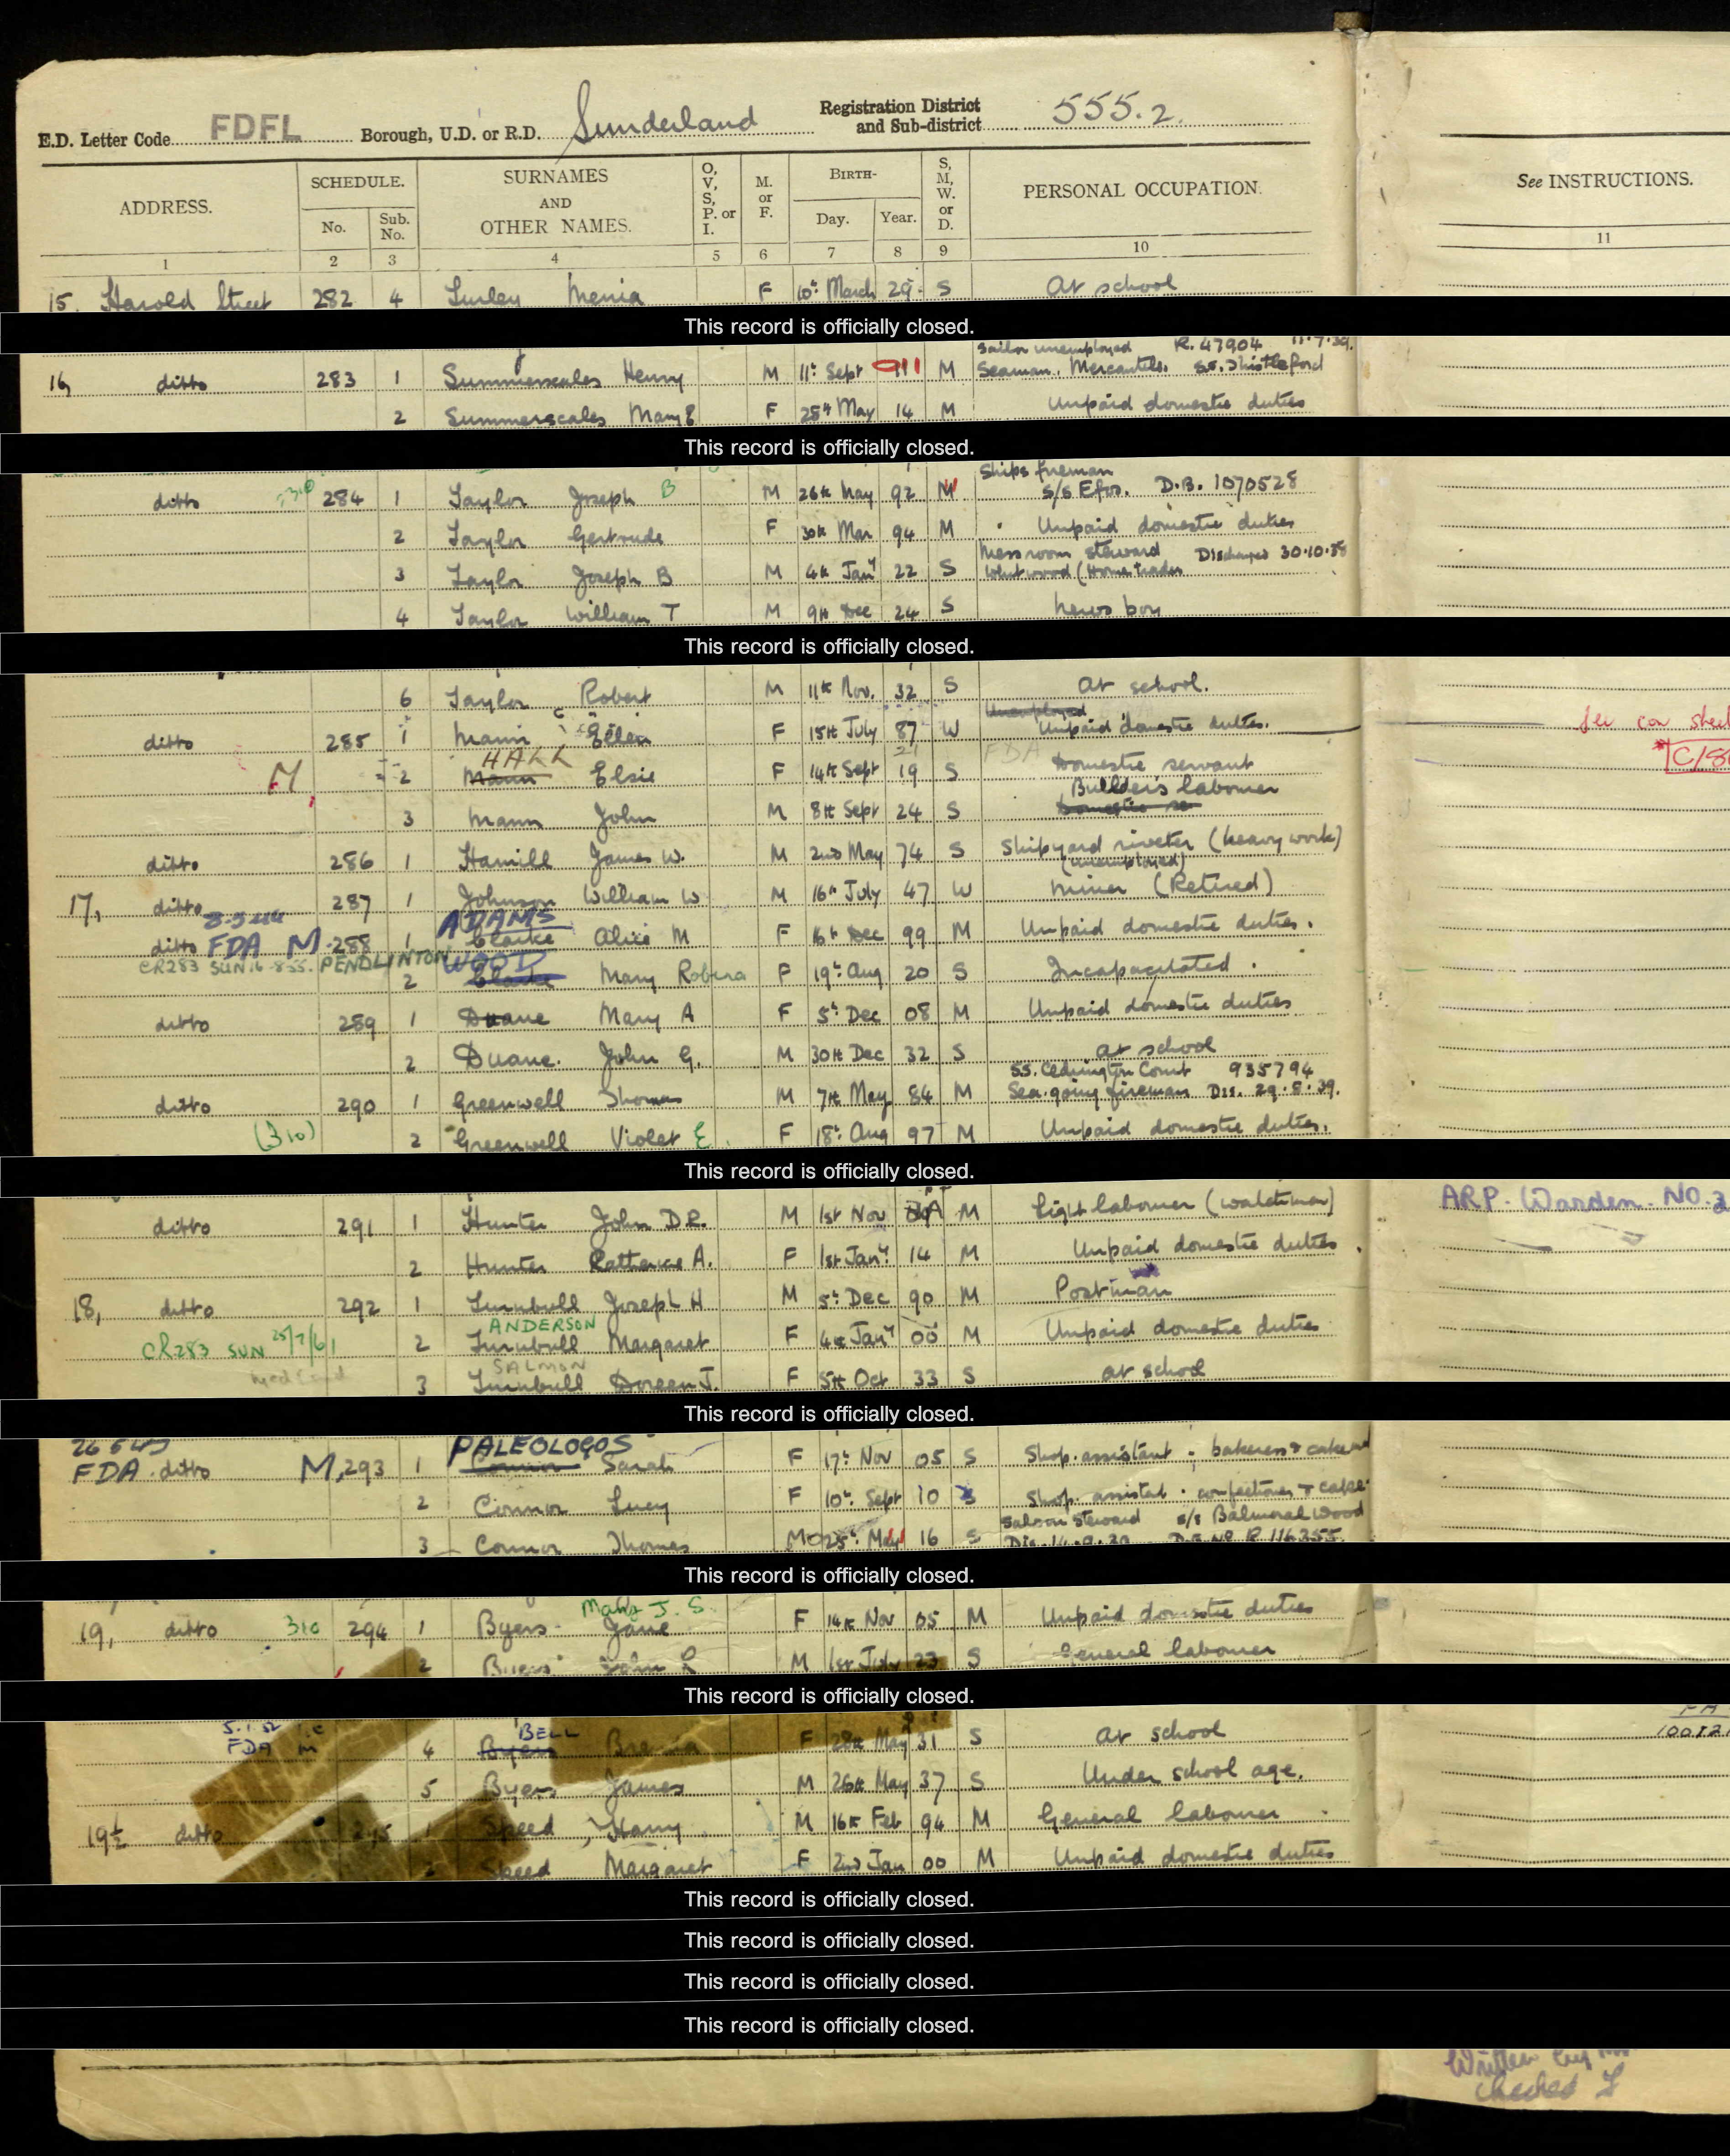 E.D. Letter Code FDFL Borough, U.D. or R.D. Sunderland Registration District and Sub-district 555.2.
ADDRESS. SCHEDULE. No. Sub. No. SURNAMES AND OTHER NAMES. O, V, S, P. or I. M. or F. BIRTH- Day. Year. S, M, W. or D. PERSONAL OCCUPATION. See INSTRUCTIONS.
1 2 3 4 5 6 7 8 9 10 11
15. Harold Street 282 4 F 10th March 29 S At school
This record is officially closed.
Sailor unemployed R. 47904 11.7.39.
16, ditto 283 1 Summerscales Henry M 11th Sept 911 M Seaman. Mercantile. S.S. Thistleford
2 Summerscales Mary E F 25th May 14 M Unpaid domestic duties
This record is officially closed.
Ships fireman
ditto 310 284 1 Taylor Joseph B M 26th May 92 M S/S Efos. D.B. 1070528
2 Taylor Gertrude F 30th Mar 94 M Unpaid domestic duties
Messroom steward Discharged 30.10.38
3 Taylor Joseph B M 4th Jany 22 S (Home trader
4 Taylor William T M 9th Dec 24 S News boy
This record is officially closed.
6 Taylor Robert M 11th Nov. 32 S At school.
Unemployed
ditto 285 1 Mann Ellen F 15th July 87 W Unpaid domestic duties.
HALL 21 FDA
M 2 Mann Elsie F 14th Sept 19 S Domestic servant
Builder's labourer
3 Mann John M 8th Sept 24 S Domestic se
ditto 286 1 Hamill James W. M 2nd May 74 S Shipyard riveter (heavy work)
(unemployed)
17, ditto 287 1 Johnson William W M 16th July 47 W Miner (Retired)
ADAMS
ditto FDA M 288 1 Clarke Alice M F 16th Dec 99 M Unpaid domestic duties.
CR283 SUN. PENDLINTON WOOD
2 Clarke Mary Robina F 19th Aug 20 S Incapacitated.
ditto 289 1 Duane Mary A F 5th Dec 08 M Unpaid domestic duties
2 Duane. John G. M 30th Dec 32 S At school
S.S. Cedrington Court 935794
ditto 290 1 Greenwell Thomas M 7th May 84 M Sea-going fireman Dis. 29.8.39.
(310) 2 Greenwell Violet E. F 18th Aug 97 M Unpaid domestic duties.
This record is officially closed.
ditto 291 1 Hunter John D.R. M 1st Nov M Light labourer (watchman) ARP. Warden. NO.
2 Hunter Katherine A. F 1st Jany 14 M Unpaid domestic duties.
18, ditto 292 1 Turnbull Joseph H M 5th Dec 90 M Postman
ANDERSON
CR283 SUN 25/7/61 2 Turnbull Margaret F 4th Jany 00 M Unpaid domestic duties
SALMON
3 Turnbull Doreen J. F 5th Oct 33 S At school
This record is officially closed.
PALEOLOGOS
FDA ditto M, 293 1 Connor Sarah F 17th Nov 05 S Shop assistant
2 Connor Lucy F 10th Sept 10 S Shop assistant
Saloon steward S/S Balmoral Wood
3 Connor Thomas M 25th May 16 S R 116355
This record is officially closed.
Mary J. S.
19, ditto 310 294 1 Byers Jane F 14th Nov 05 M Unpaid domestic duties
2 Byers John R M 1st July 23 S General labourer
This record is officially closed.
5.1.52 BELL
FDA M 4 Byers F 28th May 31 S At school
5 Byers James M 26th May 37 S Under school age.
19½ ditto 295 1 Speed Harry M 16th Feb 94 M General labourer
2 Speed Margaret F 2nd Jan 00 M Unpaid domestic duties
This record is officially closed.
This record is officially closed.
This record is officially closed.
This record is officially closed.
Written by
Checked